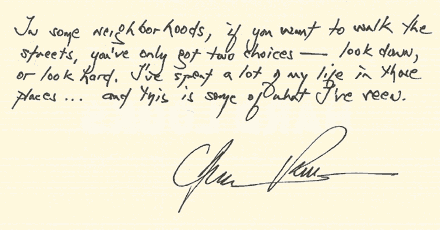 In some neighborhoods, if you want to walk the
streets, you've only got two choices — look down,
or look hard. I've spent a lot of my life in those
places... and this is some of what I've seen.